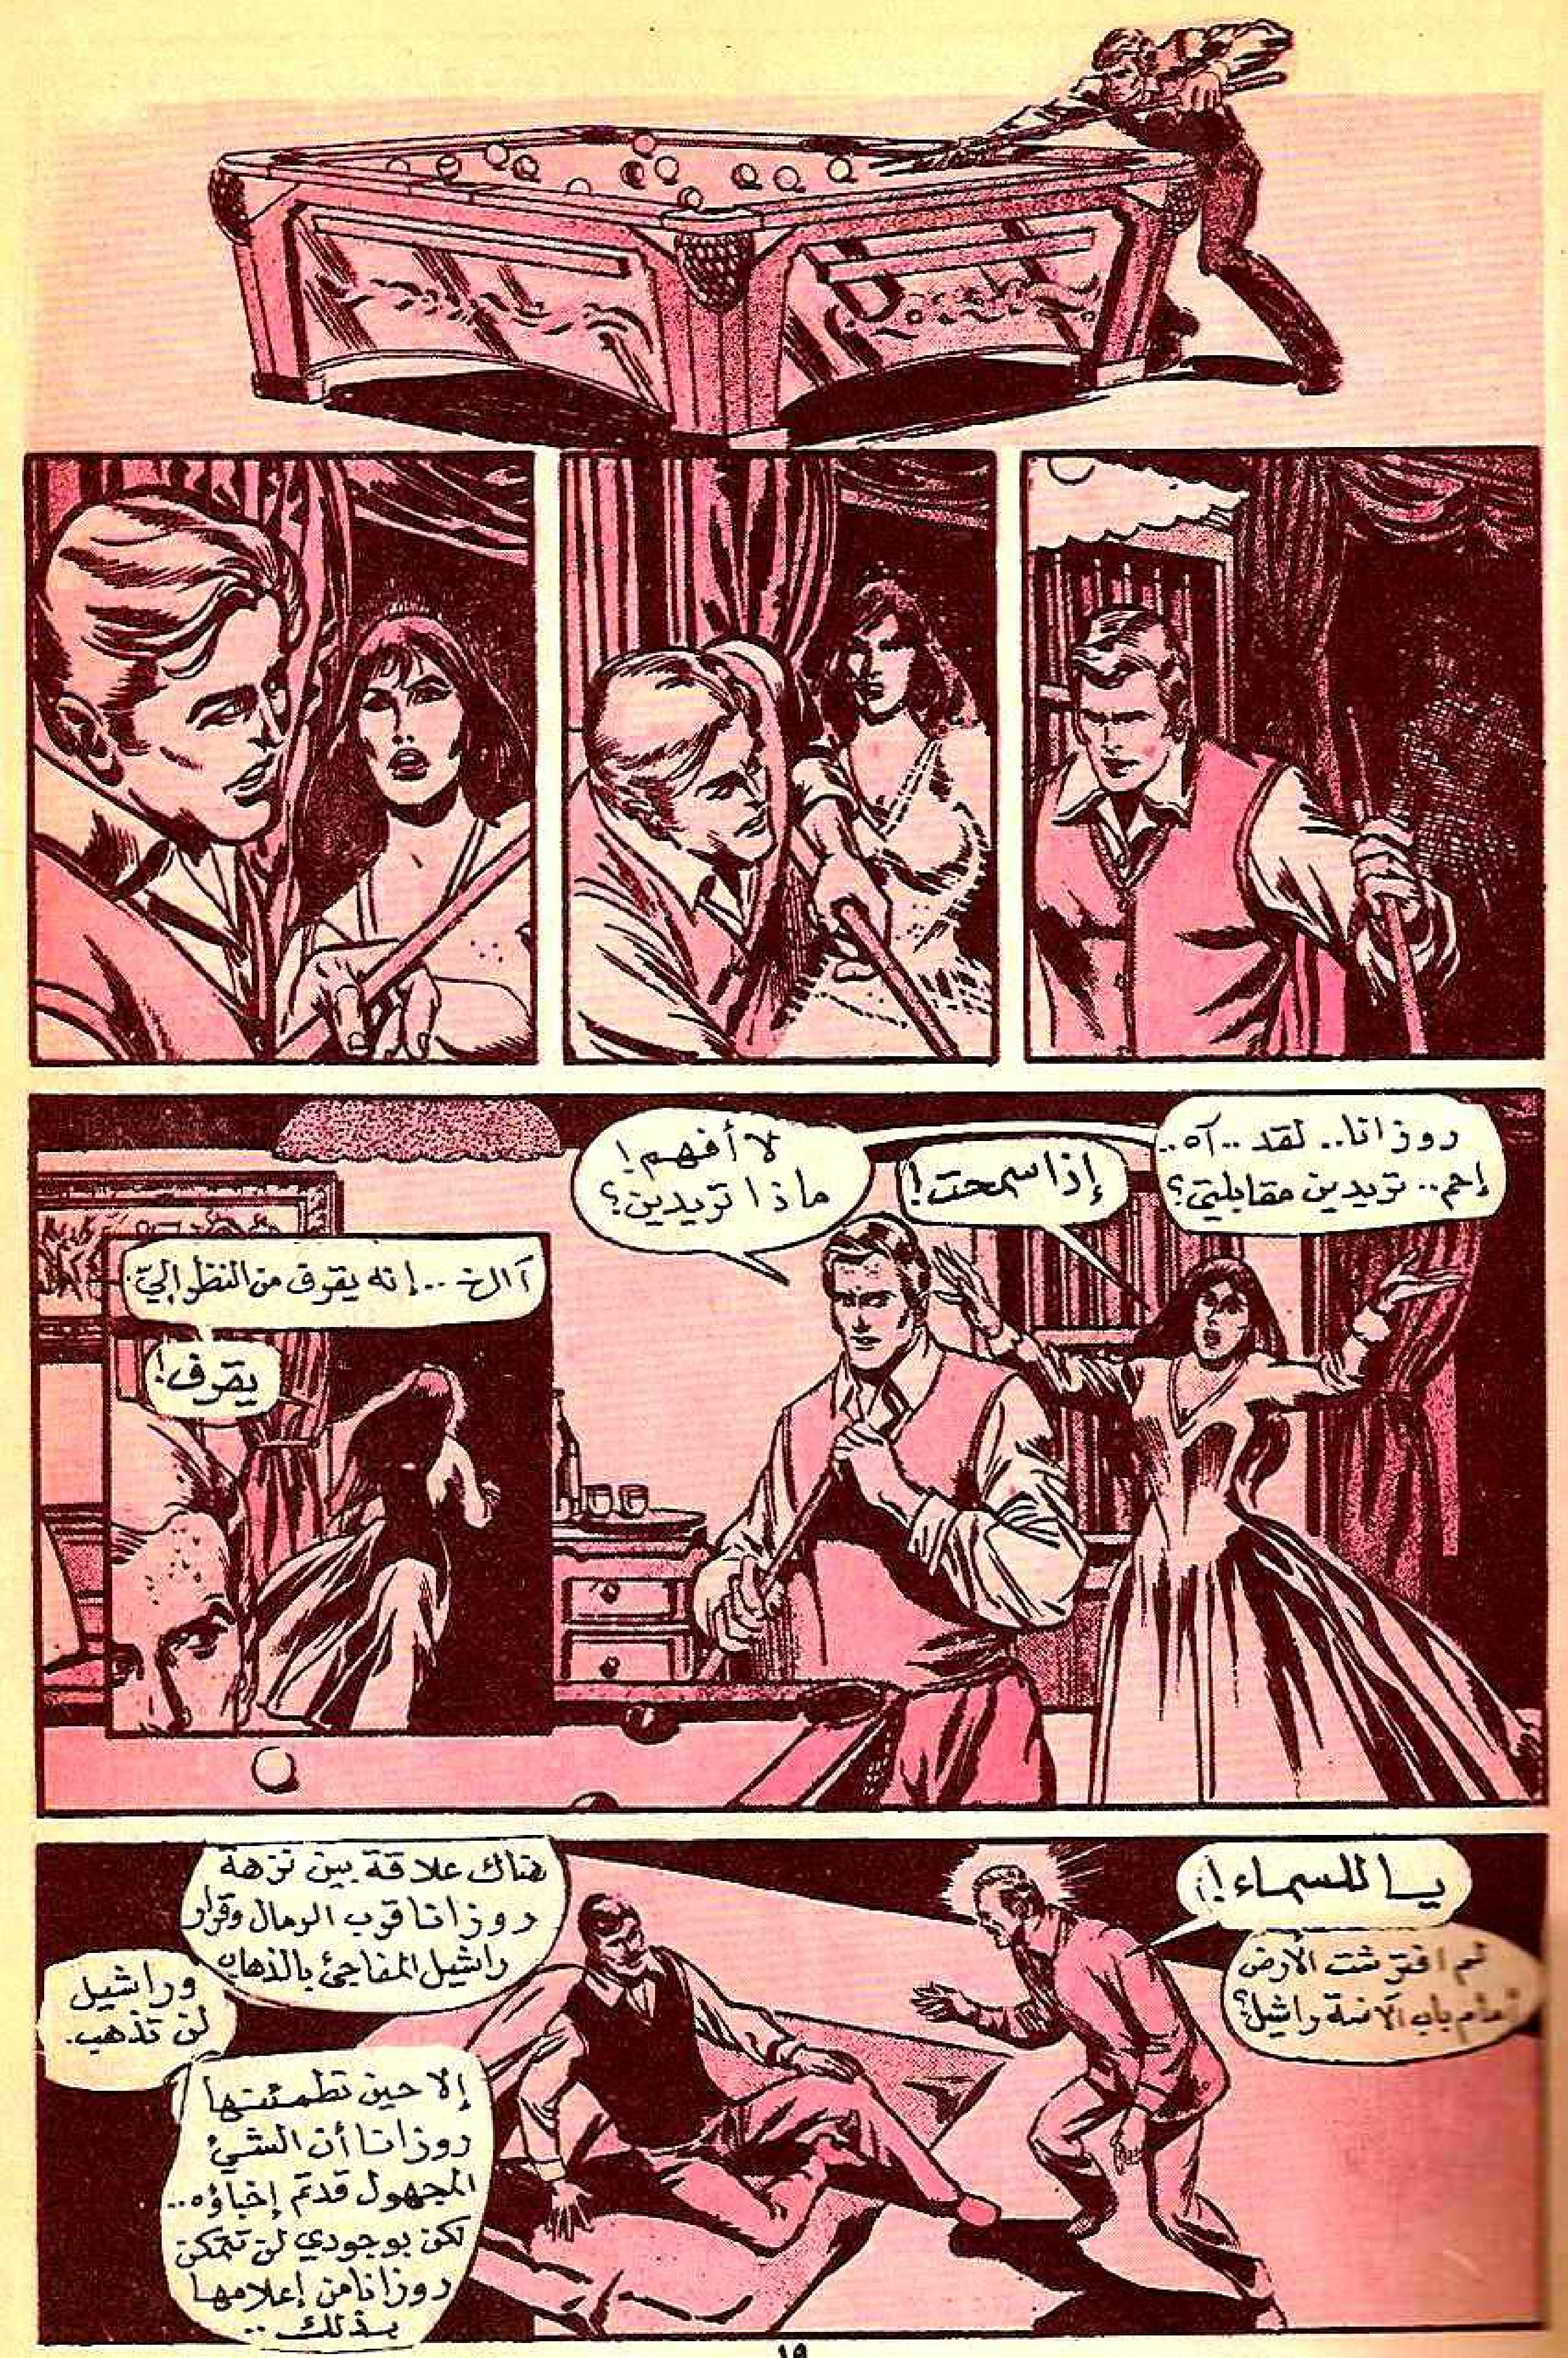 روزانا.. لقد ..آه..
إحم.. تريدين مقابلتي؟
إذا سمحت!
لا أفهم!
ماذا تريدين؟
آالخ ...إنه يقرف من النظر إليّ.
يقرف!
يا للسماء!
لم افترشت الارض
أمام باب الآنسة راشيل؟
هناك علاقة بين نزهة
روزانا قرب الرمال وقرار
راشيل المفاجئ بالذهاب
وراشيل
لن تذهب.
إلا حين تطمئنها
روزانا أن الشيئ
المجهول قد تم إخباؤه..
لكن بوجودي لن تتمكن
روزانا من إعلامها
بذلك ..
١٩